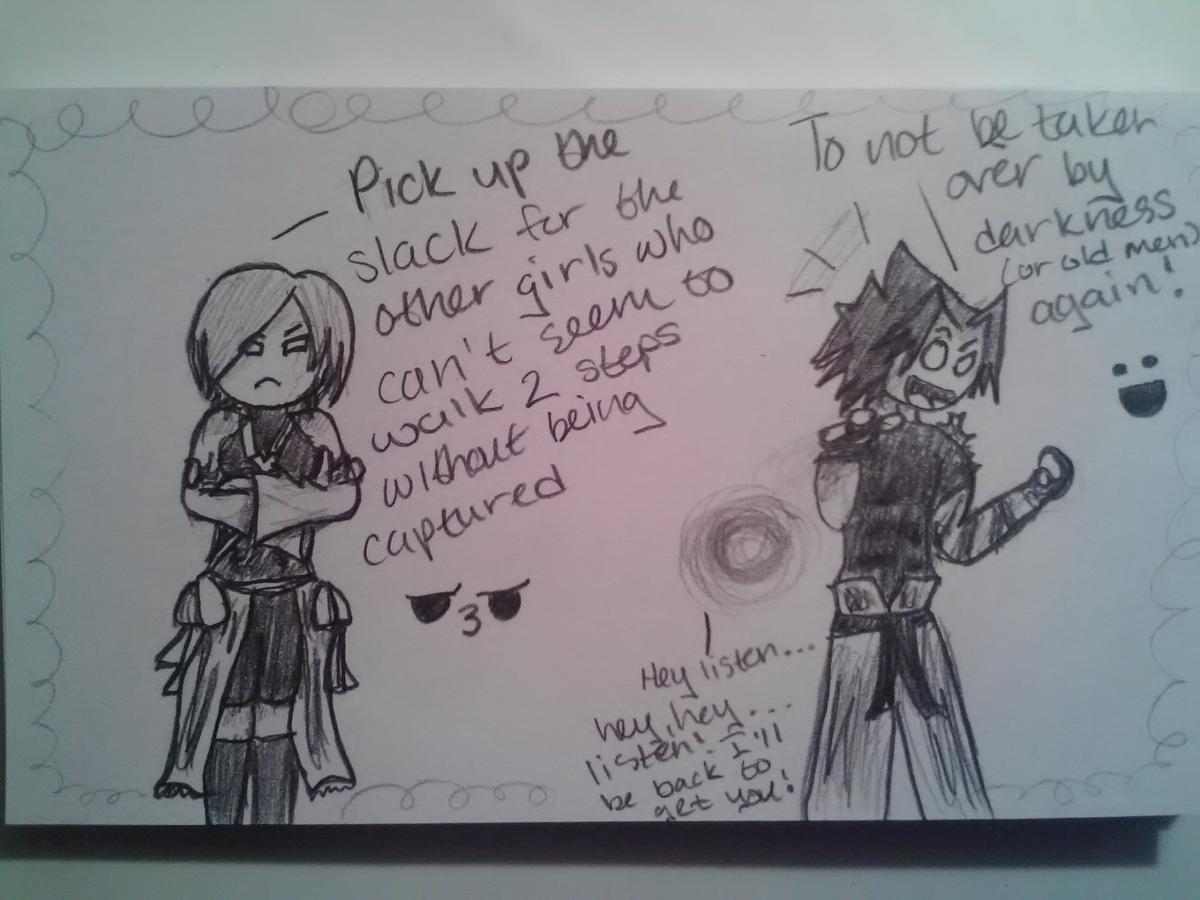 Pick up the
slack for the
other girls who
can't seem to
walk 2 steps
without being
captured
To not be taken
over by
darkness
(or old men)
again!
Hey listen...
hey, hey...
listen! I'll
be back to
get you!